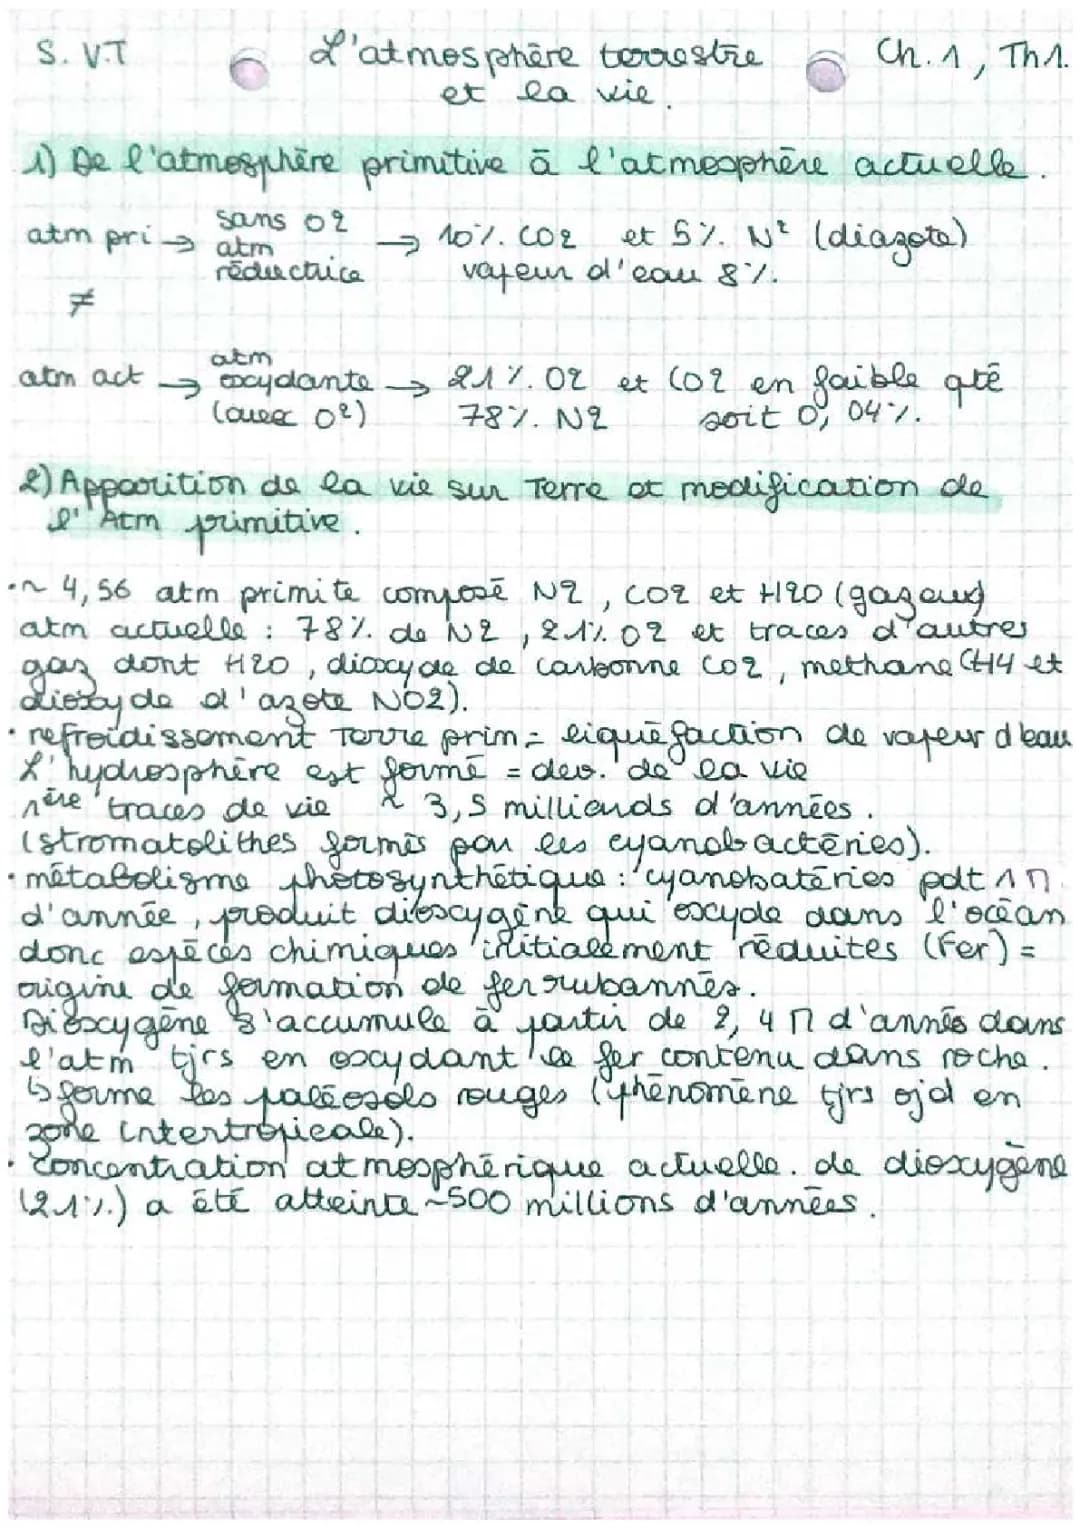 S. V.T
L'atmosphère terrestre
Ch. 1, Th 1.
et la vie.
1) De l'atmosphère primitive à l'atmosphère actuelle.
atm pri → sans O2 → 10% CO2 et 5% N² (diazote)
atm
réductrice vapeur d'eau 8%.
≠
atm act → atm
oxydante → 21% O2 et CO2 en faible qté
(avec O²) 78% N2 soit 0,04%.
2) Apparition de la vie sur Terre et modification de
l'Atm primitive.
• ~ 4,56 atm primite composé N2, CO2 et H2O (gazeux)
atm actuelle : 78% de N2, 21% O2 et traces d'autres
gaz dont H2O, dioxyde de carbonne CO2, methane CH4 et
dioxyde d'azote NO2).
• refroidissement Terre prim = liquéfaction de vapeur d'eau
L'hydrosphère est formé = dev. de la vie
1ère traces de vie ~ 3,5 milliards d'années.
(stromatolithes formés par les cyanobactéries).
• métabolisme photosynthétique : cyanobatéries pdt 1 M
d'année, produit dioxygène qui oxyde dans l'océan
donc espèces chimiques initialement réduites (Fer) =
origine de formation de fer rubannés.
Dioxygène s'accumule à partir de 2,4 M d'annés dans
l'atm tjrs en oxydant le fer contenu dans roche.
↳ forme les paléosols rouges (phénomène tjrs ojd en
zone intertropicale).
• Concentration atmosphérique actuelle. de dioxygène
(21%) a été atteinte ~500 millions d'années.